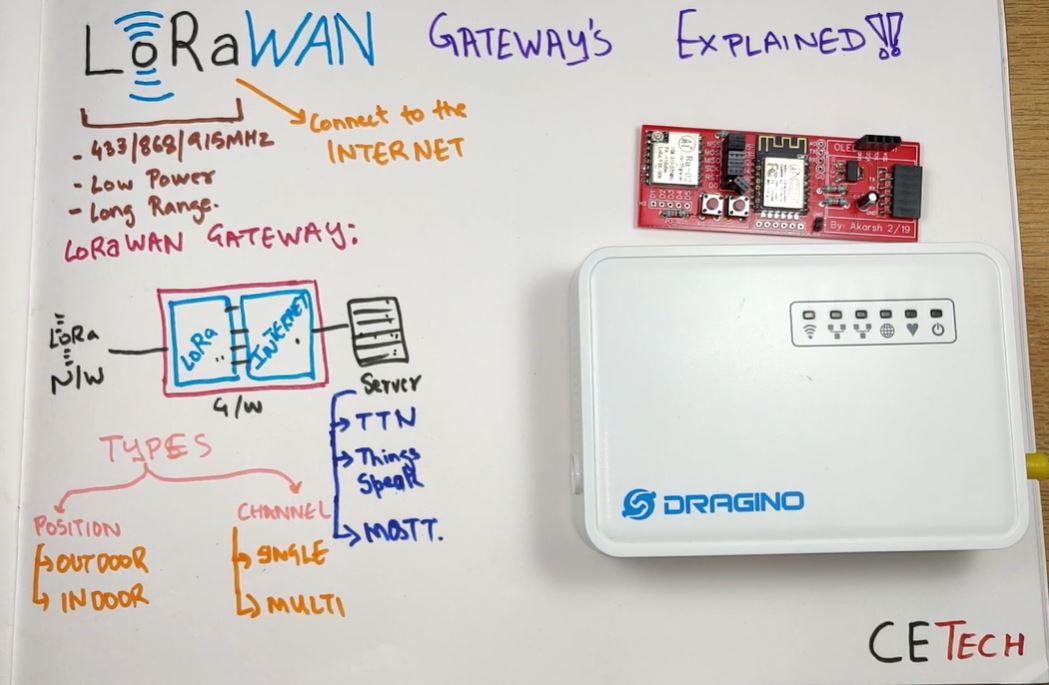 LoRaWAN GATEWAY'S EXPLAINED!!
Connect to the
INTERNET
- 433/868/915MHz
- Low Power
- Long Range.
LoRaWAN GATEWAY:
LoRa
N/W
LoRa
INTERNET
G/W
Server
TTN
Things
Speak
MQTT.
TYPES
POSITION
OUTDOOR
INDOOR
CHANNEL
SINGLE
MULTI
Ra-02
OLED
By: Akarsh 2/19
DRAGINO
CETECH